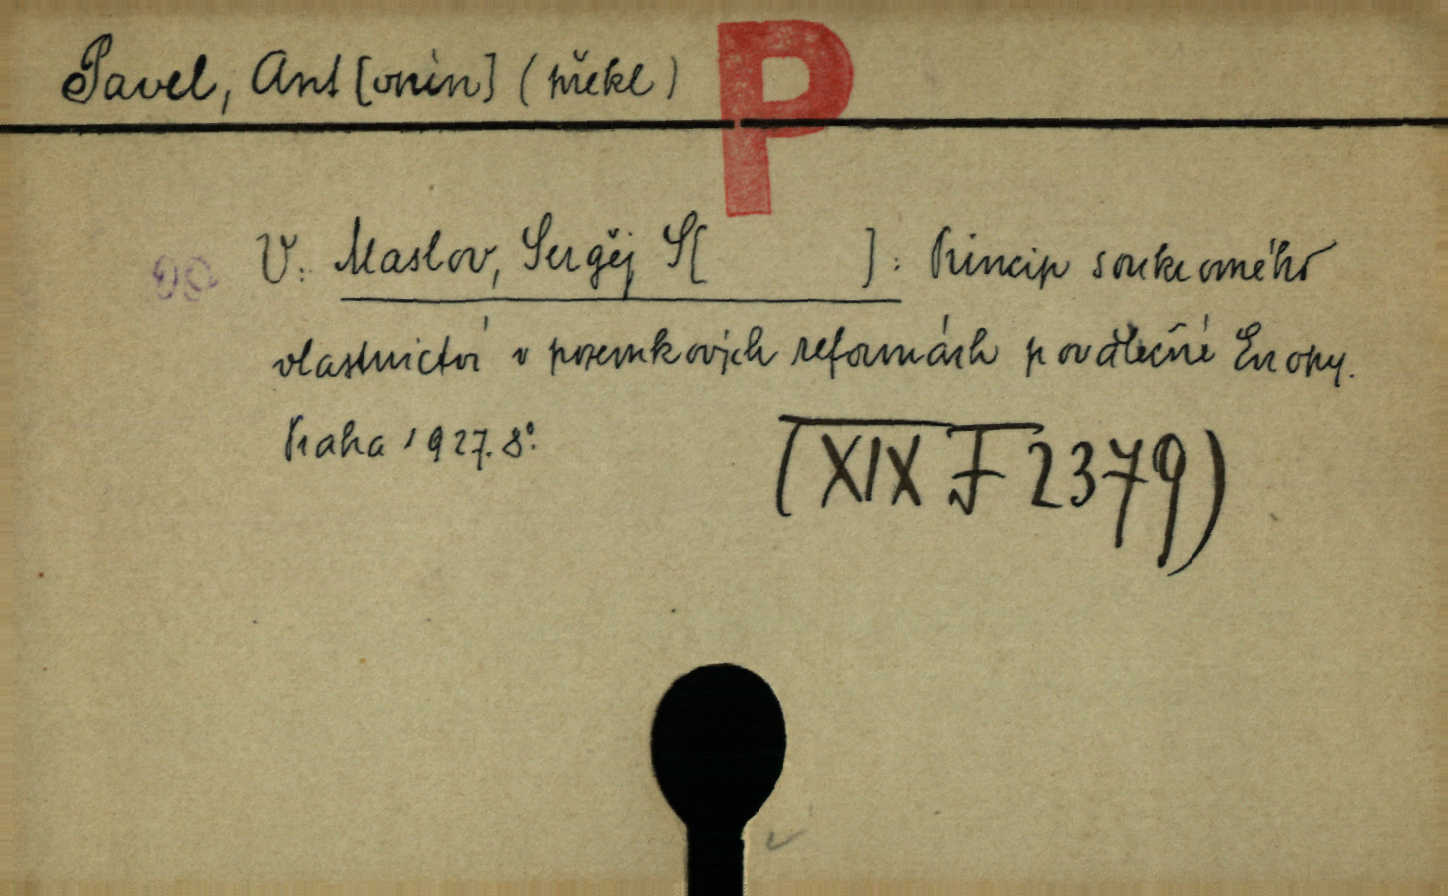 Pavel, Ant[onín] (překl)
P
V: Maslov, Sergěj S[ ]: Princip soukromého
vlastnictví v pozemkových reformách poválečné Evropy.
Praha 1927. 8°.
(XIX F 2379)